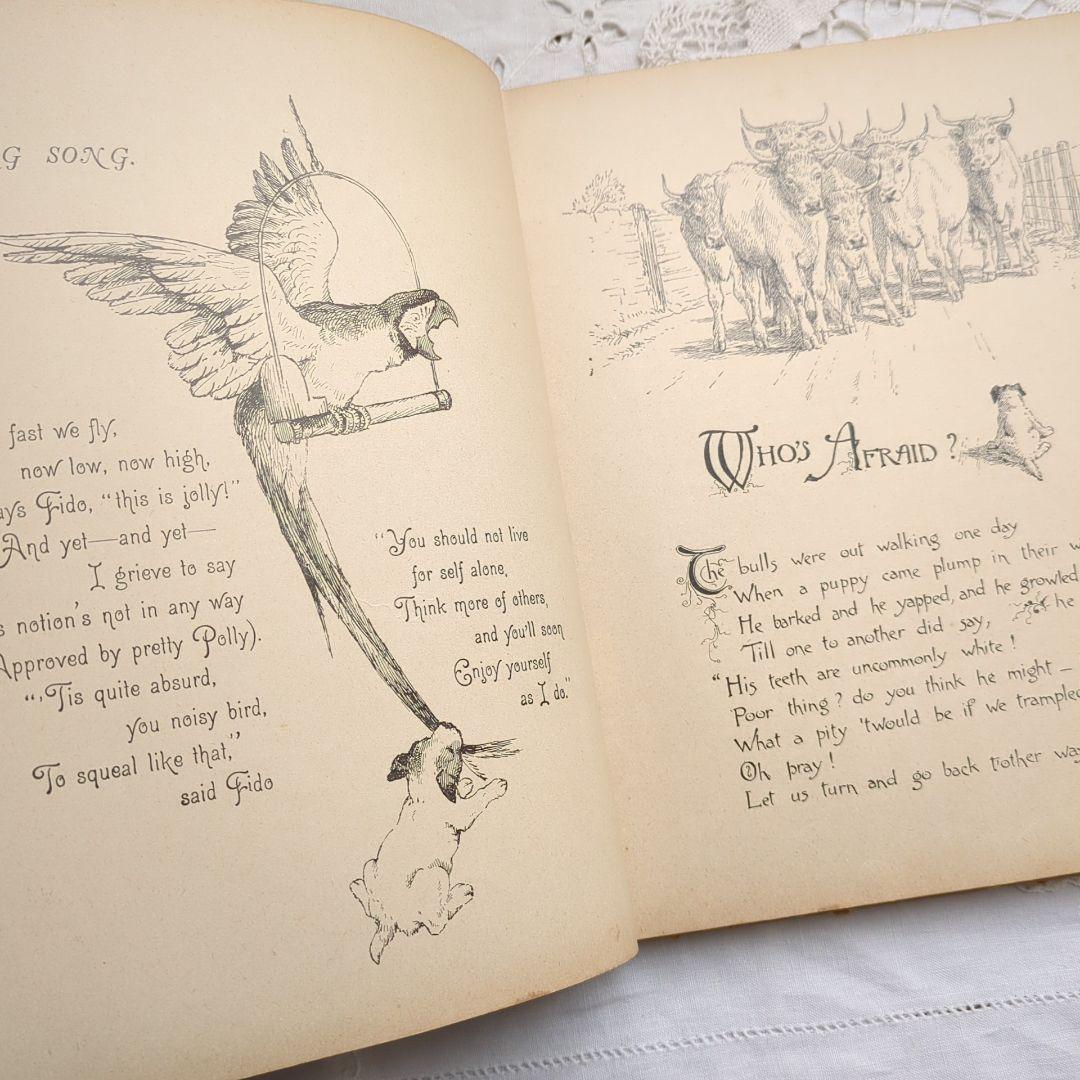 G SONG.
fast we fly,
now low, now high,
ays Fido, "this is jolly!"
And yet—and yet—
I grieve to say
s notion's not in any way
Approved by pretty Polly).
"'Tis quite absurd,
you noisy bird,
To squeal like that,"
said Fido
"You should not live
for self alone,
Think more of others,
and you'll soon
Enjoy yourself
as I do."
WHO'S AFRAID?
The bulls were out walking one day
When a puppy came plump in their w
He barked and he yapped, and he growled
he
Till one to another did say,
"His teeth are uncommonly white!
Poor thing? do you think he might —
What a pity 'twould be if we trampled
Oh pray!
Let us turn and go back t'other way